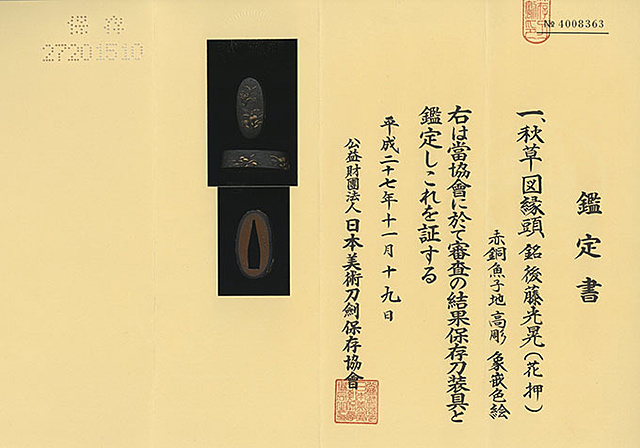 № 4008363
鑑定書
一、秋草図縁頭 銘 後藤光晃(花押)
赤銅魚子地 高彫 象嵌色絵
右は當協會に於て審査の結果保存刀装具と
鑑定しこれを証する
平成二十七年十一月十九日
公益財團法人 日本美術刀劍保存協會
保存
27201510